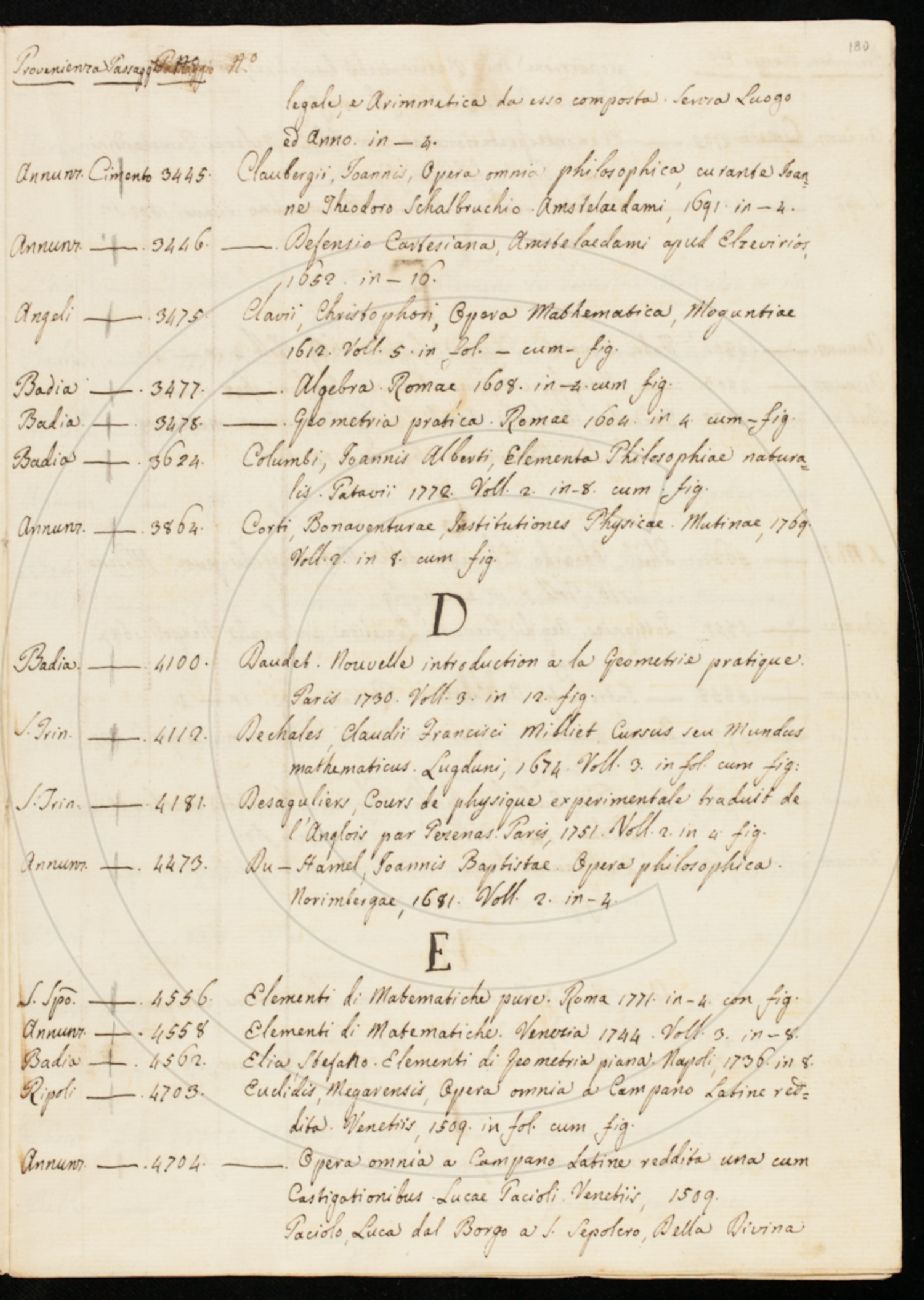 180
Provenienza Passagg Passaggio N.o
legale, e Arimmetica da esso composta. Senza Luogo
ed Anno. in — 4.
Annunz. Cimento 3445. Claubergii, Joannis, Opera omnia philosophica, curante Joan=
ne Theodoro Schalbruchio. Amstelaedami, 1691. in — 4.
Annunz. — . 3446. — . Defensio Cartesiana, Amstelaedami apud Elzevirios,
1652. in — 16.
Angeli — . 3475. Clavii, Christophori, Opera Mathematica, Moguntiae
1612. Voll. 5. in fol. — cum — fig.
Badia — . 3477. — . Algebra. Romae, 1608. in — 4. cum fig.
Badia — . 3478. — . Geometria pratica. Romae 1604. in 4. cum — fig.
Badia — . 3624. Columbi, Joannis Alberti, Elementa Philosophiae natura=
lis. Patavii 1772. Voll. 2. in — 8. cum fig.
Annunz. — . 3864. Corti, Bonaventurae, Institutiones Physicae. Mutinae, 1769.
Voll. 2. in 8. cum fig.
D
Badia. — . 4100. Daudet. Nouvelle introduction a la Geometrie pratique.
Paris 1730. Voll. 3. in 12. fig.
S. Trin. — . 4112. Dechales, Claudii Francisci Milliet, Cursus seu Mundus
mathematicus. Lugduni, 1674. Voll. 3. in fol. cum fig:
S. Trin. — . 4181. Desaguliers, Cours de physique experimentale traduit de
l'Anglois par Pezenas. Paris, 1751. Voll. 2. in 4. fig.
Annunz. — . 4473. Du — Hamel, Joannis Baptistae. Opera philosophica.
Norimbergae, 1681. Voll. 2. in — 4.
E
S. Spo. — . 4556. Elementi di Matematiche pure. Roma 1771. in — 4. con fig.
Annunz. — . 4558 Elementi di Matematiche. Venezia 1744. Voll. 3. in — 8.
Badia — . 4562. Elia, Stefano. Elementi di Geometria piana. Napoli, 1736. in 8.
Ripoli — . 4703. Euclidis, Megarensis, Opera omnia a Campano Latine red=
dita. Venetiis, 1509. in fol. cum fig.
Annunz. — . 4704. — . Opera omnia a Campano Latine reddita una cum
Castigationibus. Lucae Pacioli. Venetiis, 1509.
Paciolo, Luca dal Borgo a S. Sepolcro, Della Divina